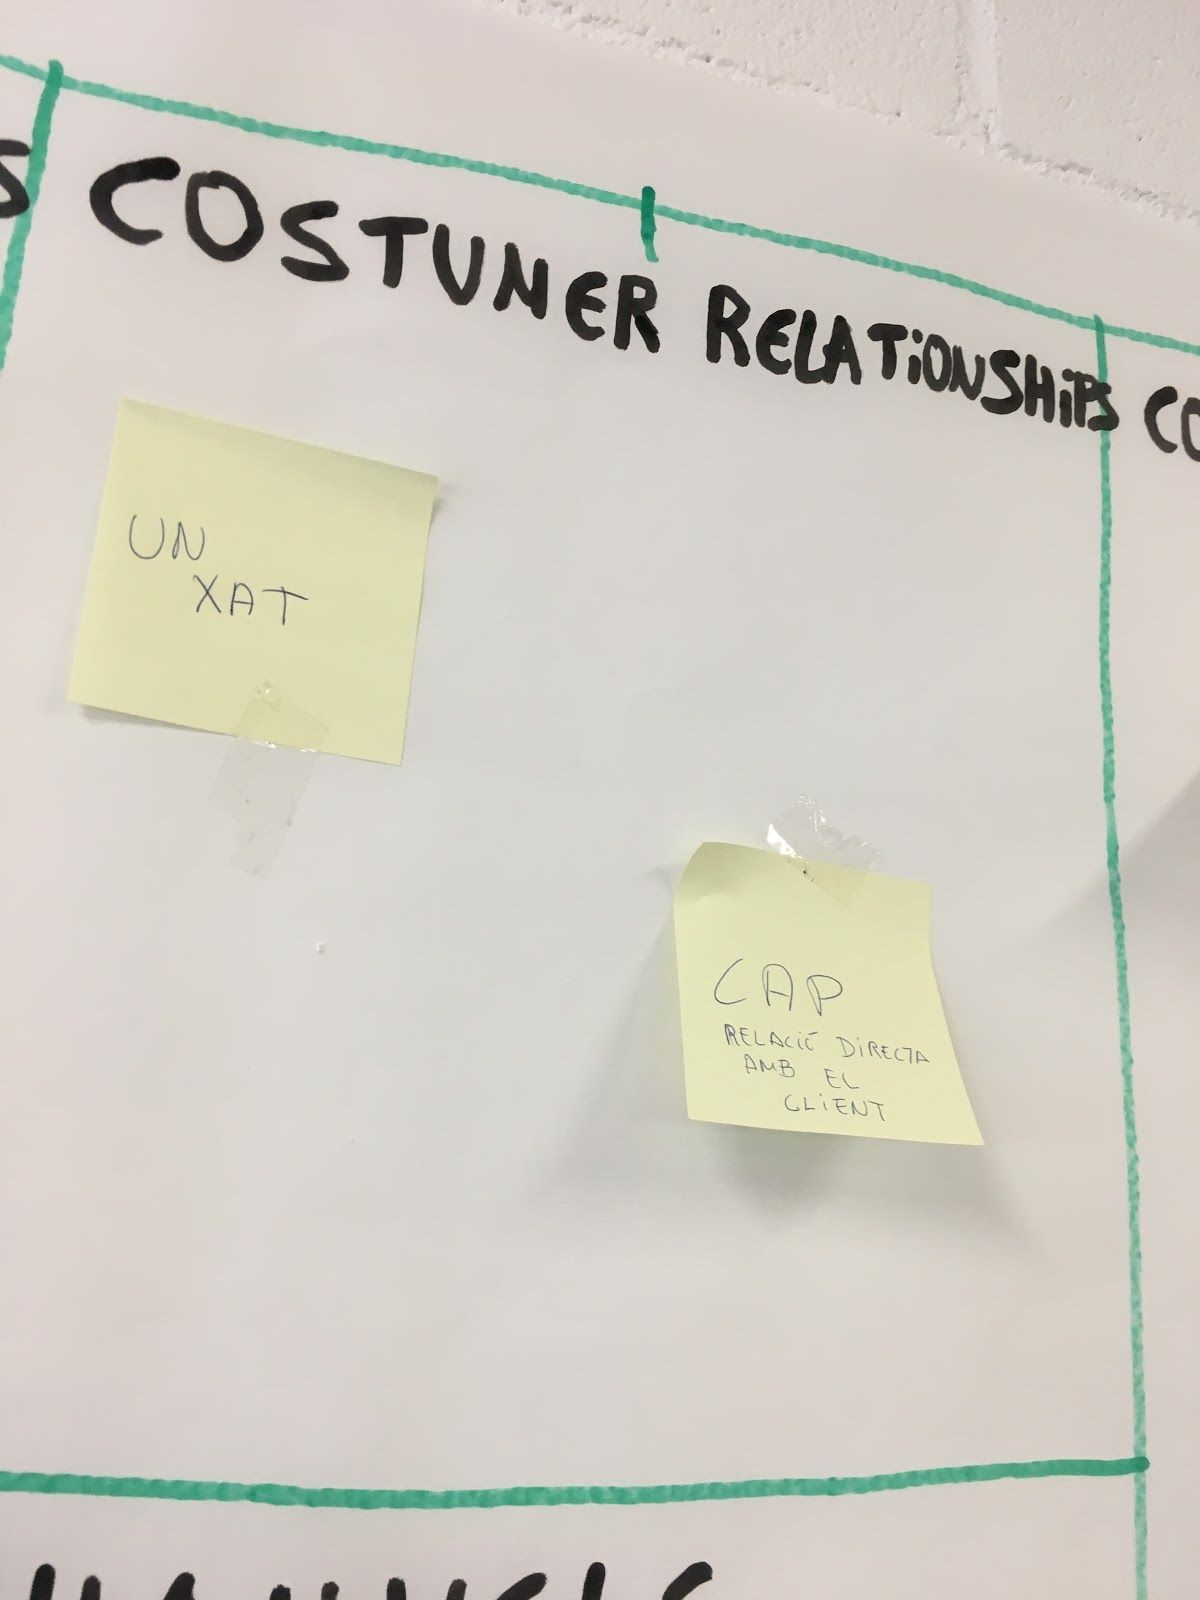 S
COSTUMER RELATIONSHIPS
CO
UN
XAT
CAP
RELACIÓ DIRECTA
AMB EL
CLIENT